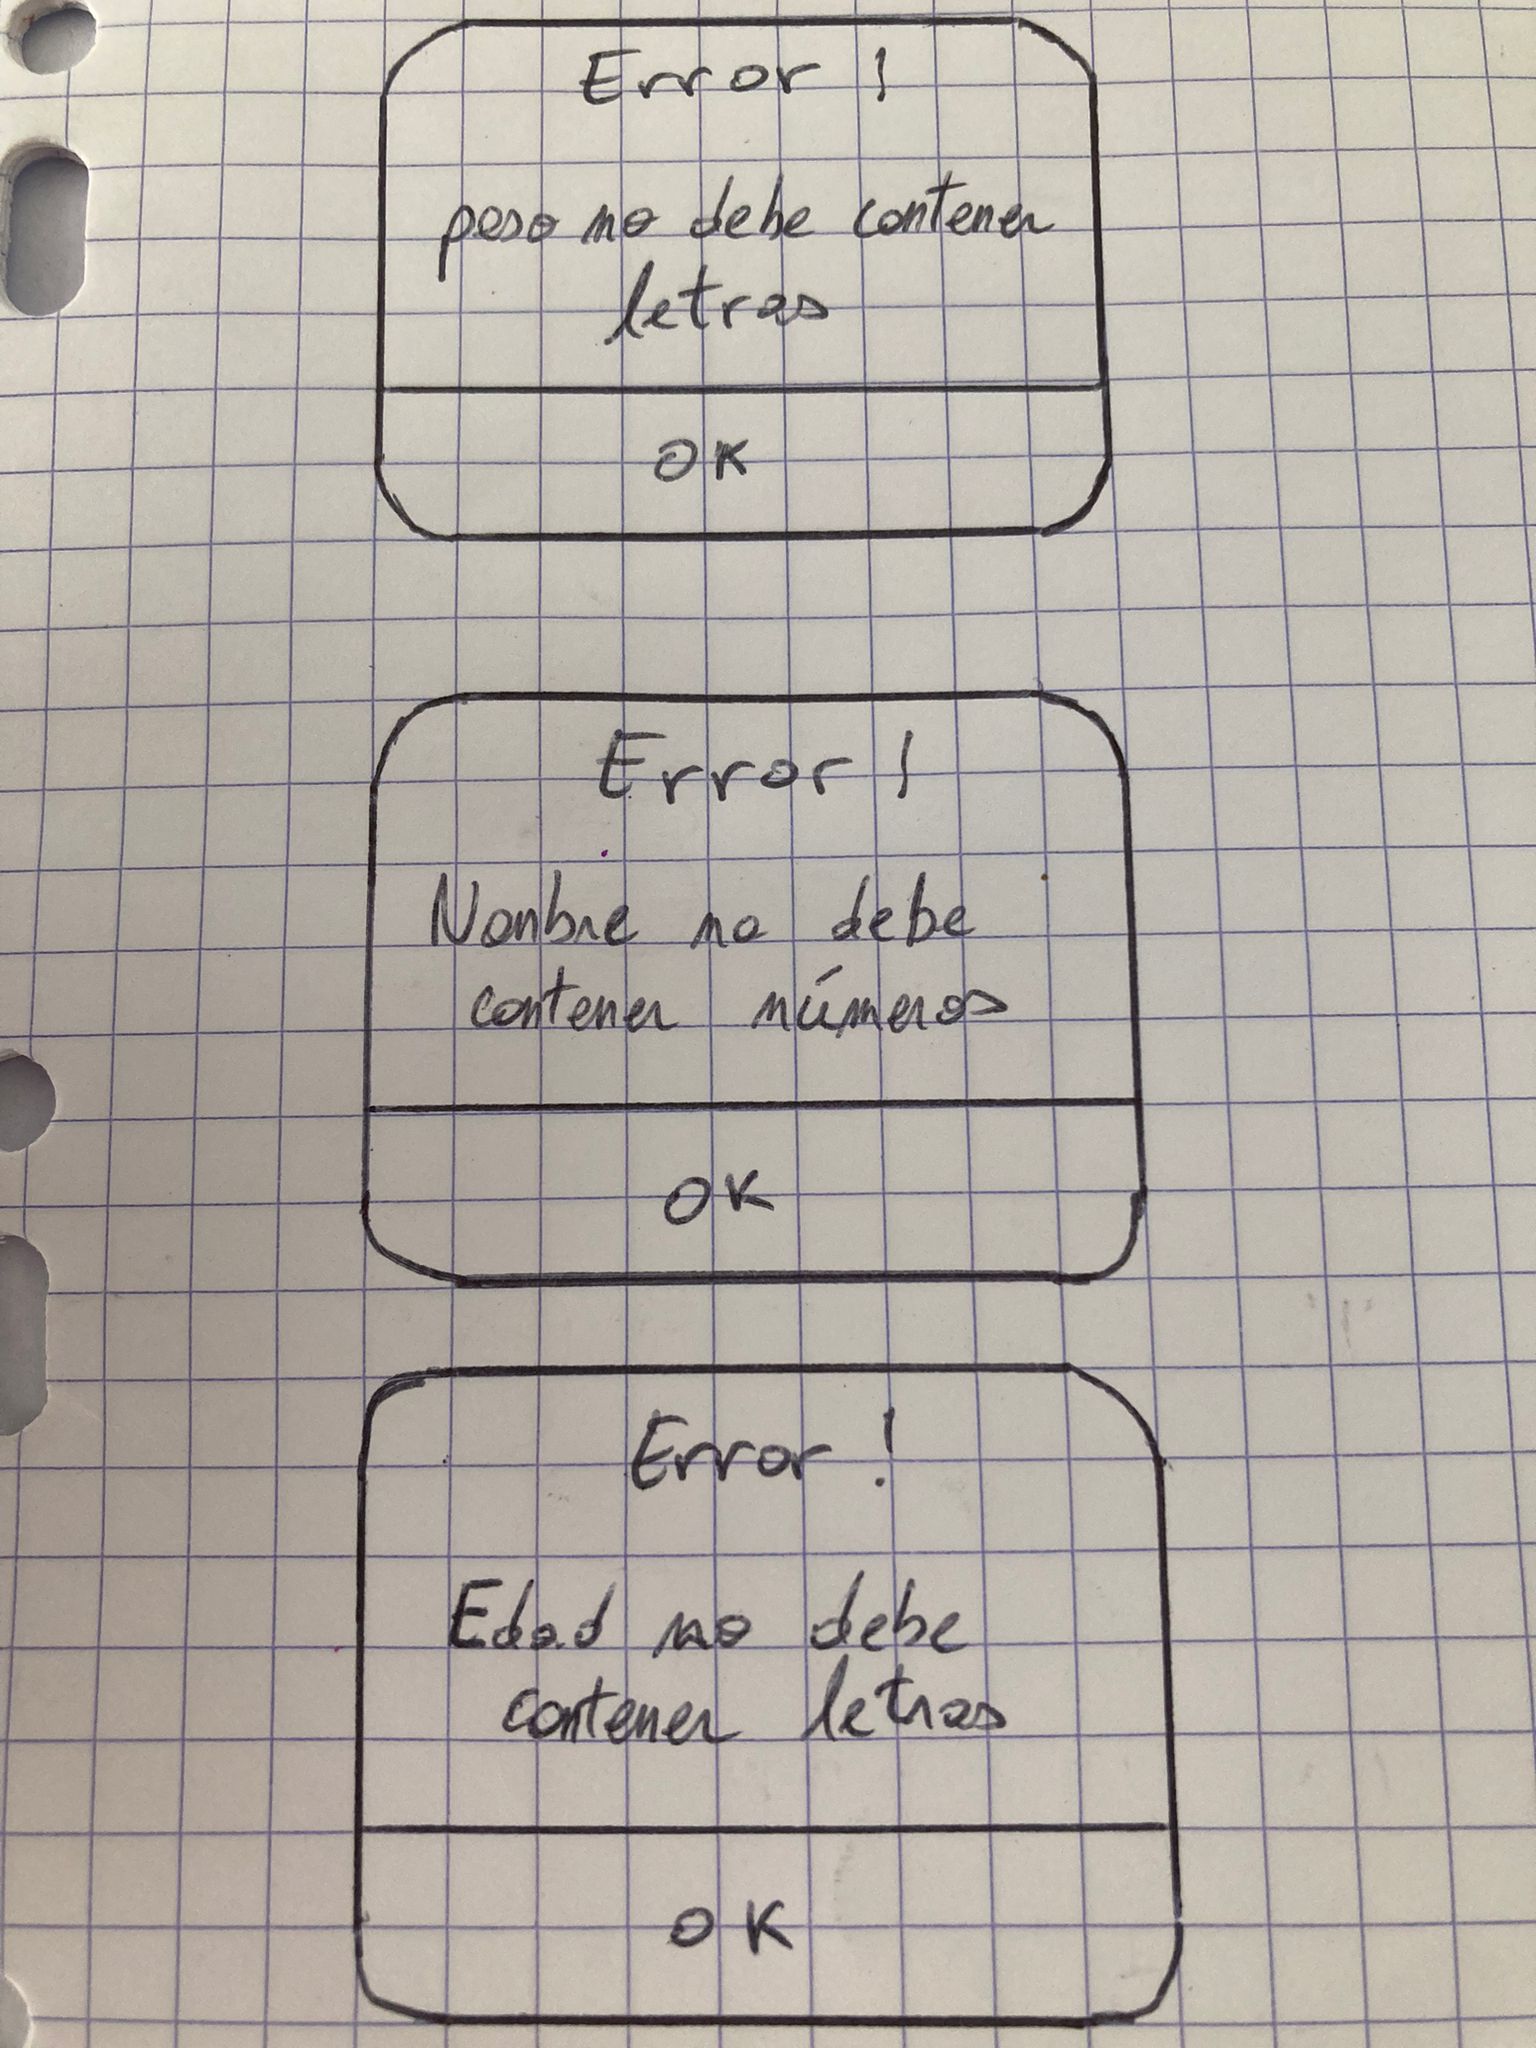 Error !
peso no debe contener
letras
OK
Error !
Nombre no debe
contener números
OK
Error !
Edad no debe
contener letras
OK